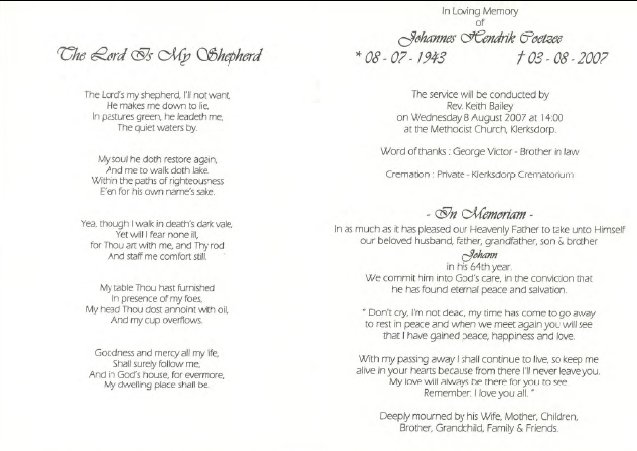 The Lord Is My Shepherd
The Lord's my shepherd, I'll not want,
He makes me down to lie,
In pastures green, he leadeth me,
The quiet waters by.
My soul he doth restore again,
And me to walk doth lake.
Within the paths of righteousness
E'en for his own name's sake.
Yea, though I walk in death's dark vale,
Yet will I fear none ill,
for Thou art with me, and Thy rod
And staff me comfort still.
My table Thou hast furnished
In presence of my foes,
My head Thou dost annoint with oil,
And my cup overflows.
Goodness and mercy all my life,
Shall surely follow me,
And in God's house, for evermore,
My dwelling place shall be.
In Loving Memory
of
Johannes Hendrik Coetzee
* 08 - 07 - 1943 † 03 - 08 - 2007
The service will be conducted by
Rev. Keith Bailey
on Wednesday 8 August 2007 at 14:00
at the Methodist Church, Klerksdorp.
Word of thanks : George Victor - Brother in law
Cremation : Private - Klerksdorp Crematorium
- In Memoriam -
In as much as it has pleased our Heavenly Father to take unto Himself
our beloved husband, father, grandfather, son & brother
Johann
in his 64th year.
We commit him into God's care, in the conviction that
he has found eternal peace and salvation.
" Don't cry, I'm not dead, my time has come to go away
to rest in peace and when we meet again you will see
that I have gained peace, happiness and love.
With my passing away I shall continue to live, so keep me
alive in your hearts because from there I'll never leave you.
My love will always be there for you to see
Remember: I love you all. "
Deeply mourned by his Wife, Mother, Children,
Brother, Grandchild, Family & Friends.